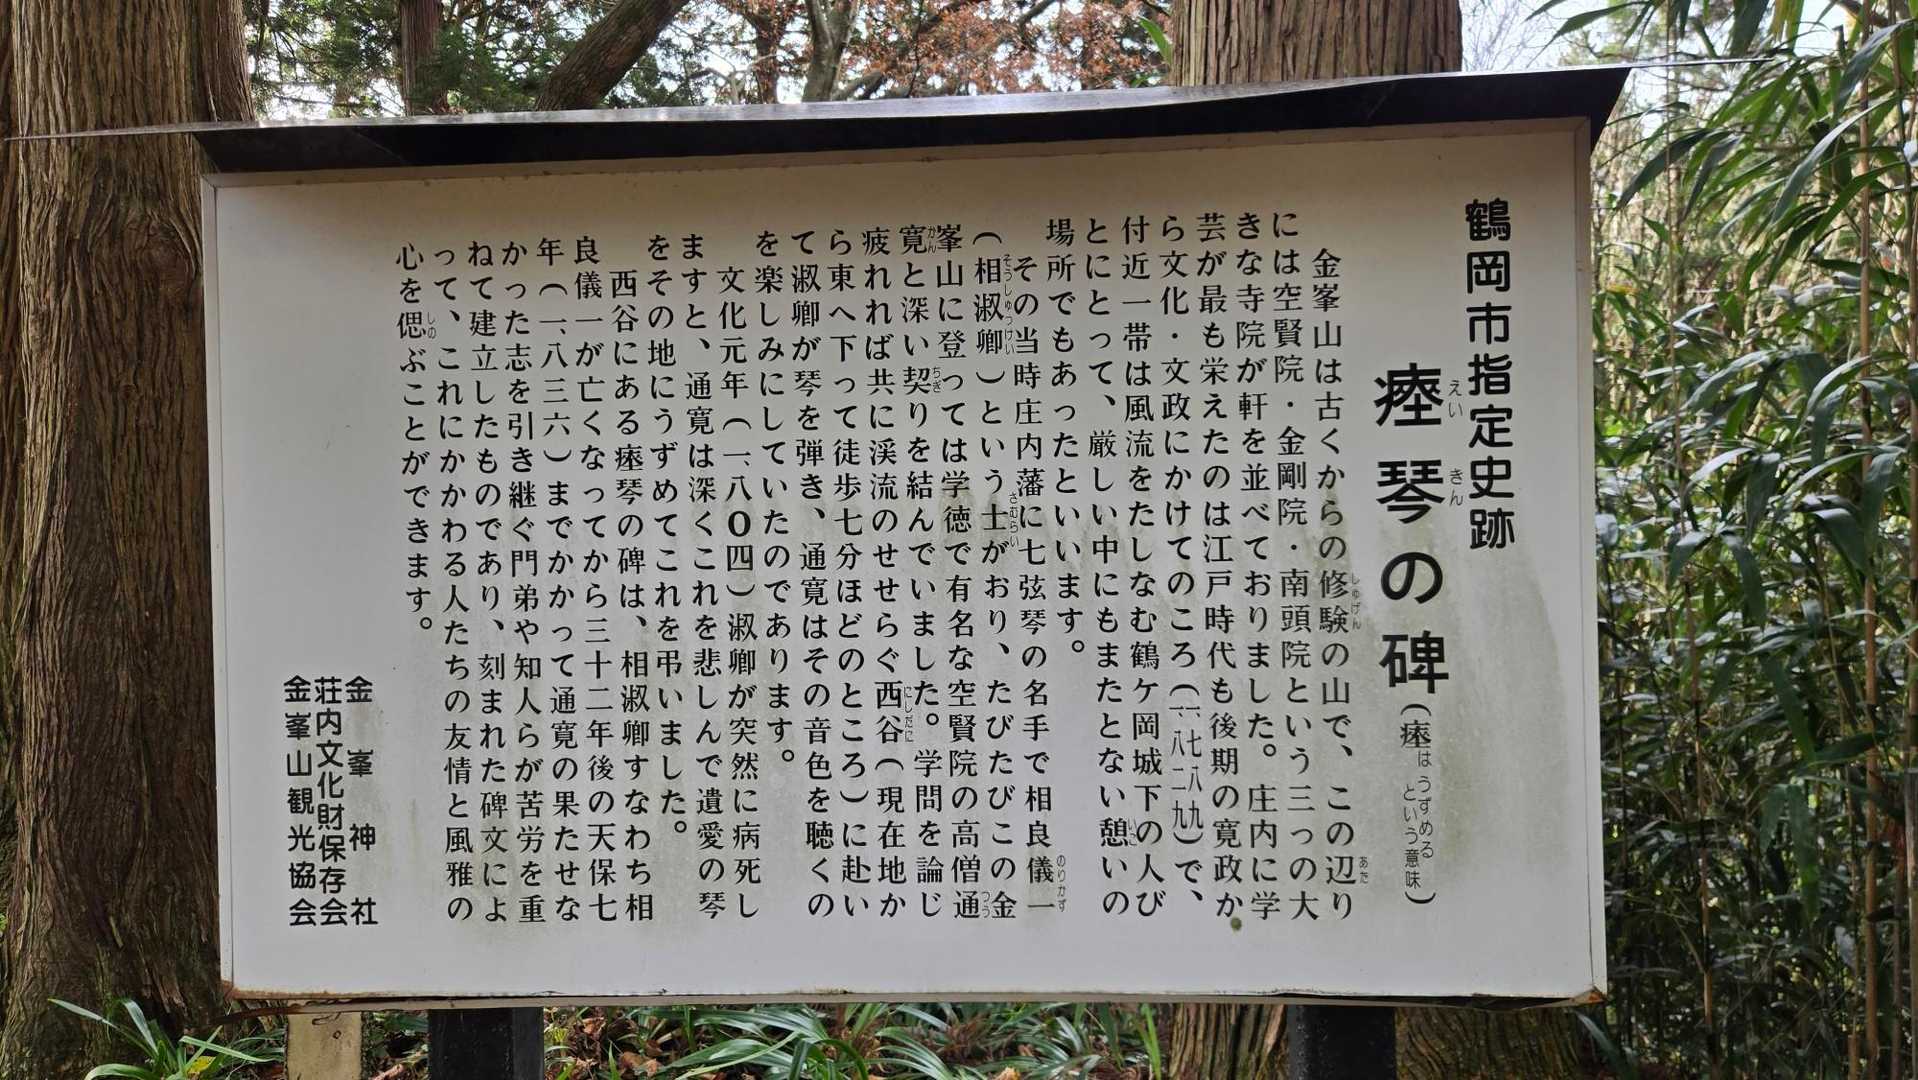 鶴岡市指定史跡
瘞琴の碑(瘞はうずめるという意味)
えい きん
金峯山は古くからの修験の山で、この辺り
には空賢院・金剛院・南頭院という三っの大
きな寺院が軒を並べておりました。庄内に学
芸が最も栄えたのは江戸時代も後期の寛政か
ら文化・文政にかけてのころ(一、七八九〜一、八二九)で、
付近一帯は風流をたしなむ鶴ケ岡城下の人び
とにとって、厳しい中にもまたとない憩いの
場所でもあったといいます。
その当時庄内藩に七弦琴の名手で相良儀一
(相淑卿)という士がおり、たびたびこの金
峯山に登っては学徳で有名な空賢院の高僧通
寛と深い契りを結んでいました。学問を論じ
疲れれば共に渓流のせせらぐ西谷(現在地か
ら東へ下って徒歩七分ほどのところ)に赴い
て淑卿が琴を弾き、通寛はその音色を聴くの
を楽しみにしていたのであります。
文化元年(一、八〇四)淑卿が突然に病死し
ますと、通寛は深くこれを悲しんで遺愛の琴
をその地にうずめてこれを弔いました。
西谷にある瘞琴の碑は、相淑卿すなわち相
良儀一が亡くなってから三十二年後の天保七
年(一、八三六)までかかって通寛の果たせな
かった志を引き継ぐ門弟や知人らが苦労を重
ねて建立したものであり、刻まれた碑文によ
って、これにかかわる人たちの友情と風雅の
心を偲ぶことができます。
金峯神社
荘内文化財保存会
金峯山観光協会